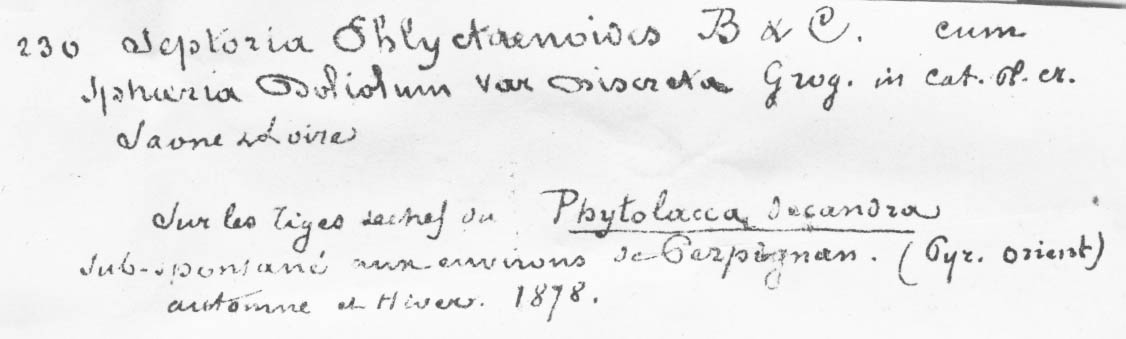 230 Septoria Phlyctaenoides B & C. cum
Sphæria Doliolum var Discreta Grog. in cat. Pl. cr.
Saone et Loire
Sur les Tiges seches du Phytolacca decandra
sub-spontané aux environs de Perpignan. (Pyr. orient)
automne et Hiver. 1878.